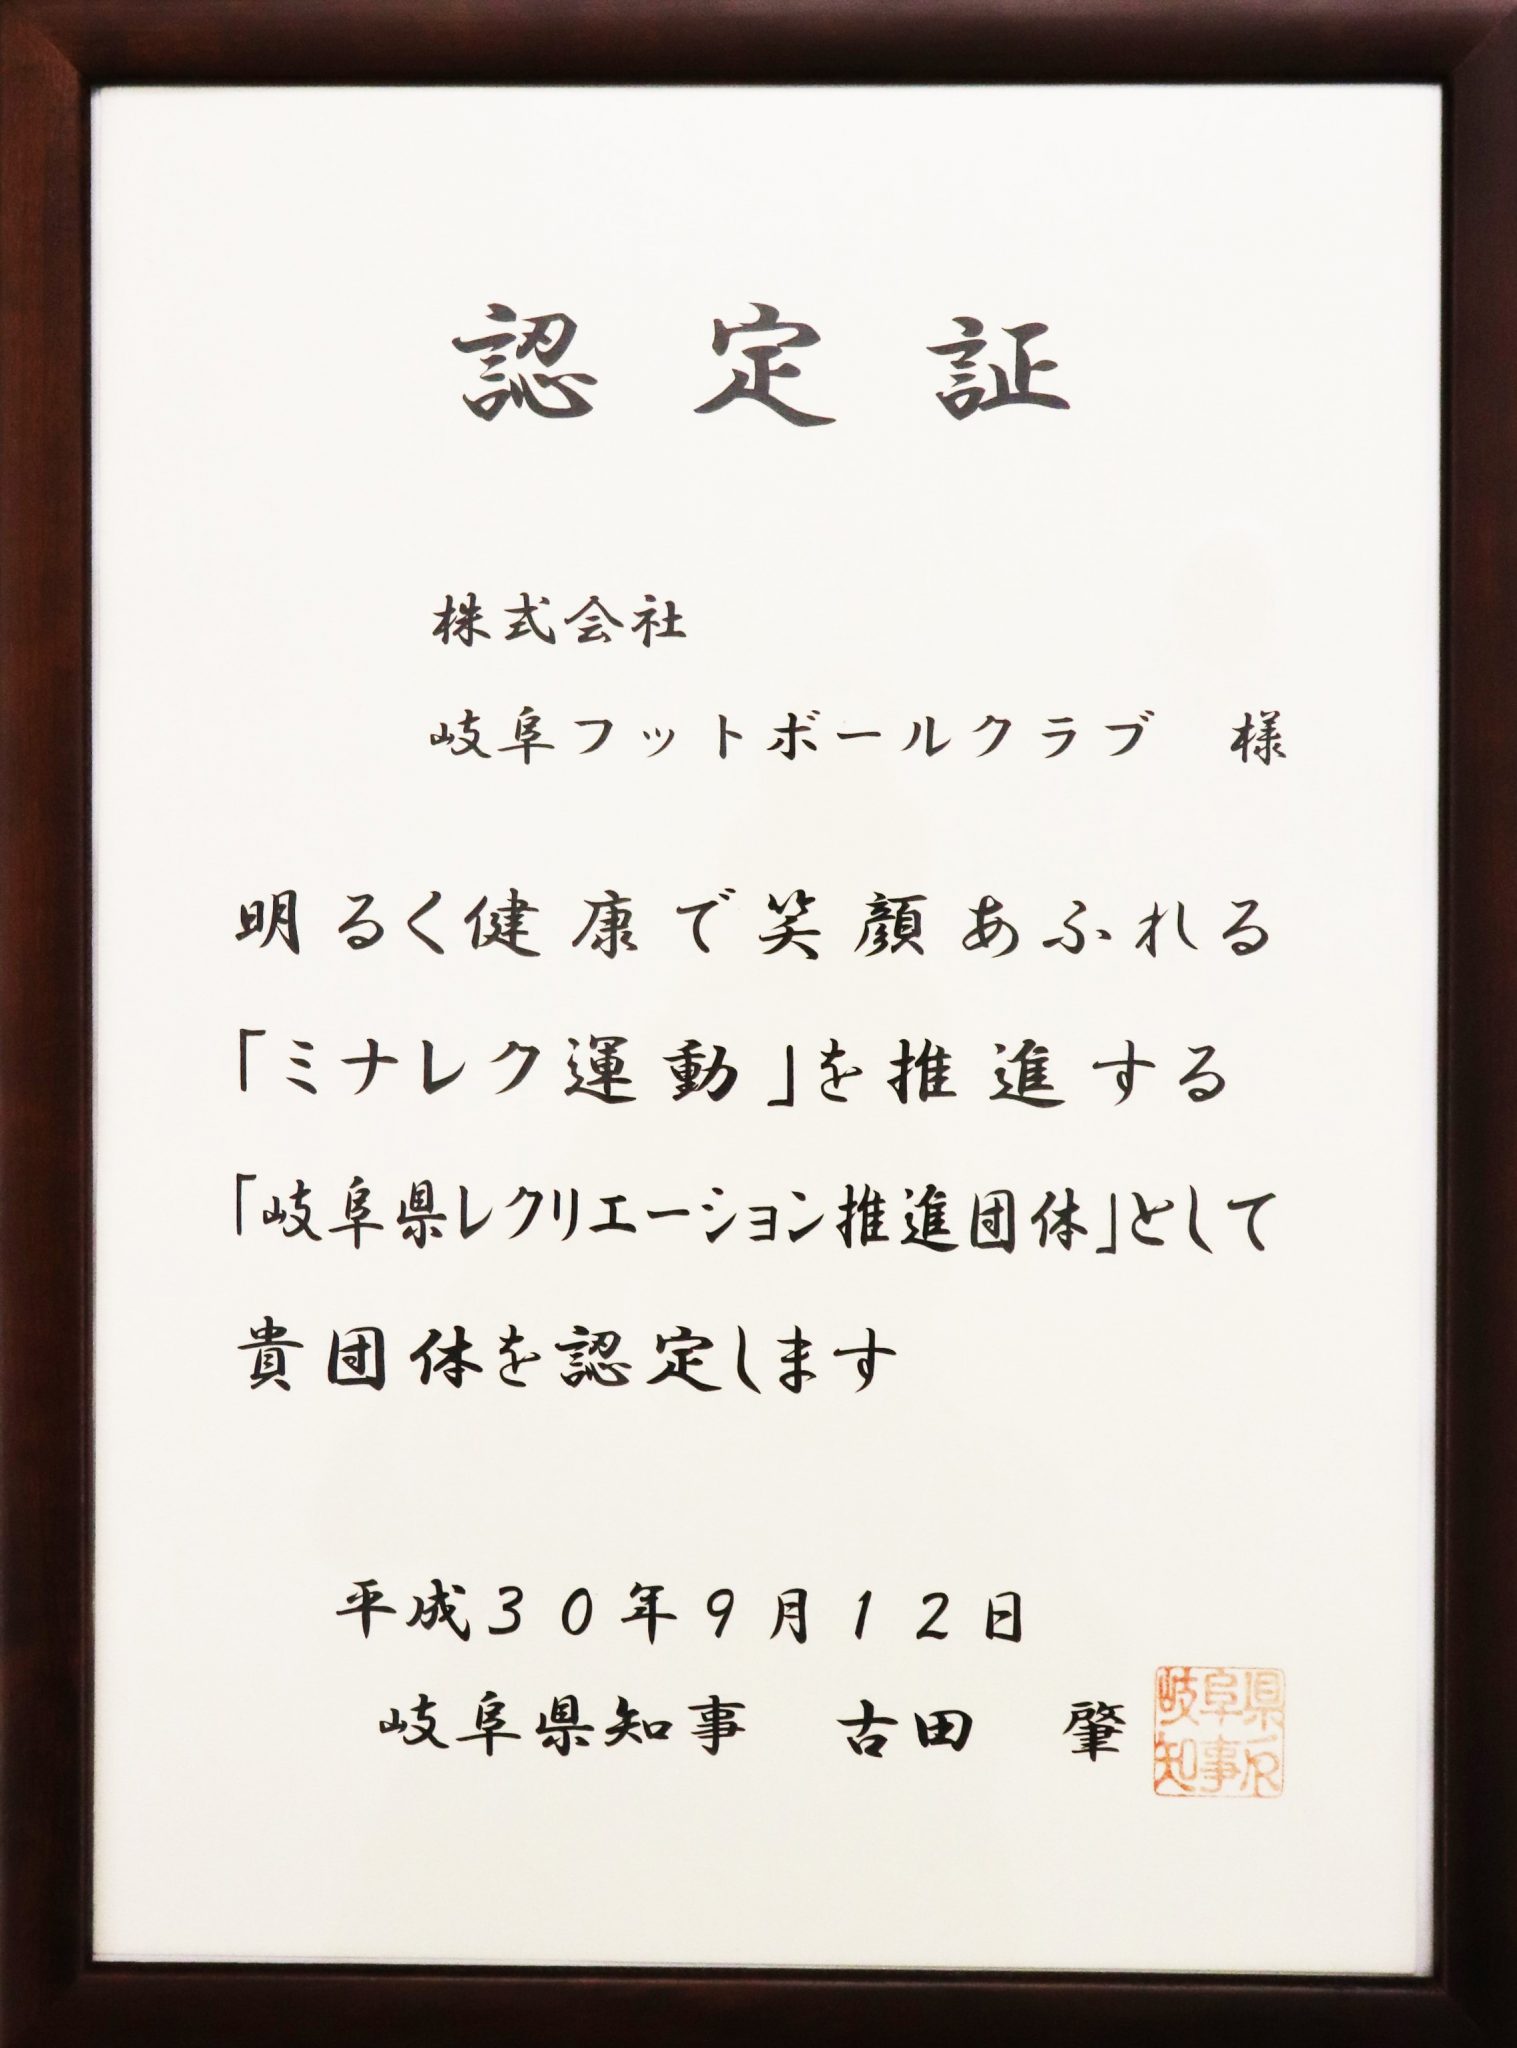 認定証
株式会社
岐阜フットボールクラブ　様
明るく健康で笑顔あふれる
「ミナレク運動」を推進する
「岐阜県レクリエーション推進団体」として
貴団体を認定します
平成３０年９月１２日
岐阜県知事　古田　肇
岐阜県
知事印